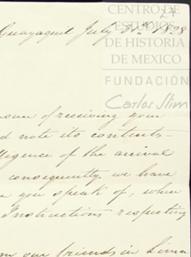 CENTRO DE
ESTUDIOS
DE HISTORIA
DE MEXICO
FUNDACIÓN
Carlos Slim
Guayaquil July 31st 1898
of receiving your
note its contents
of the arrival
consequently we have
you speak of, when
Instructions respecting
our friends in Lima